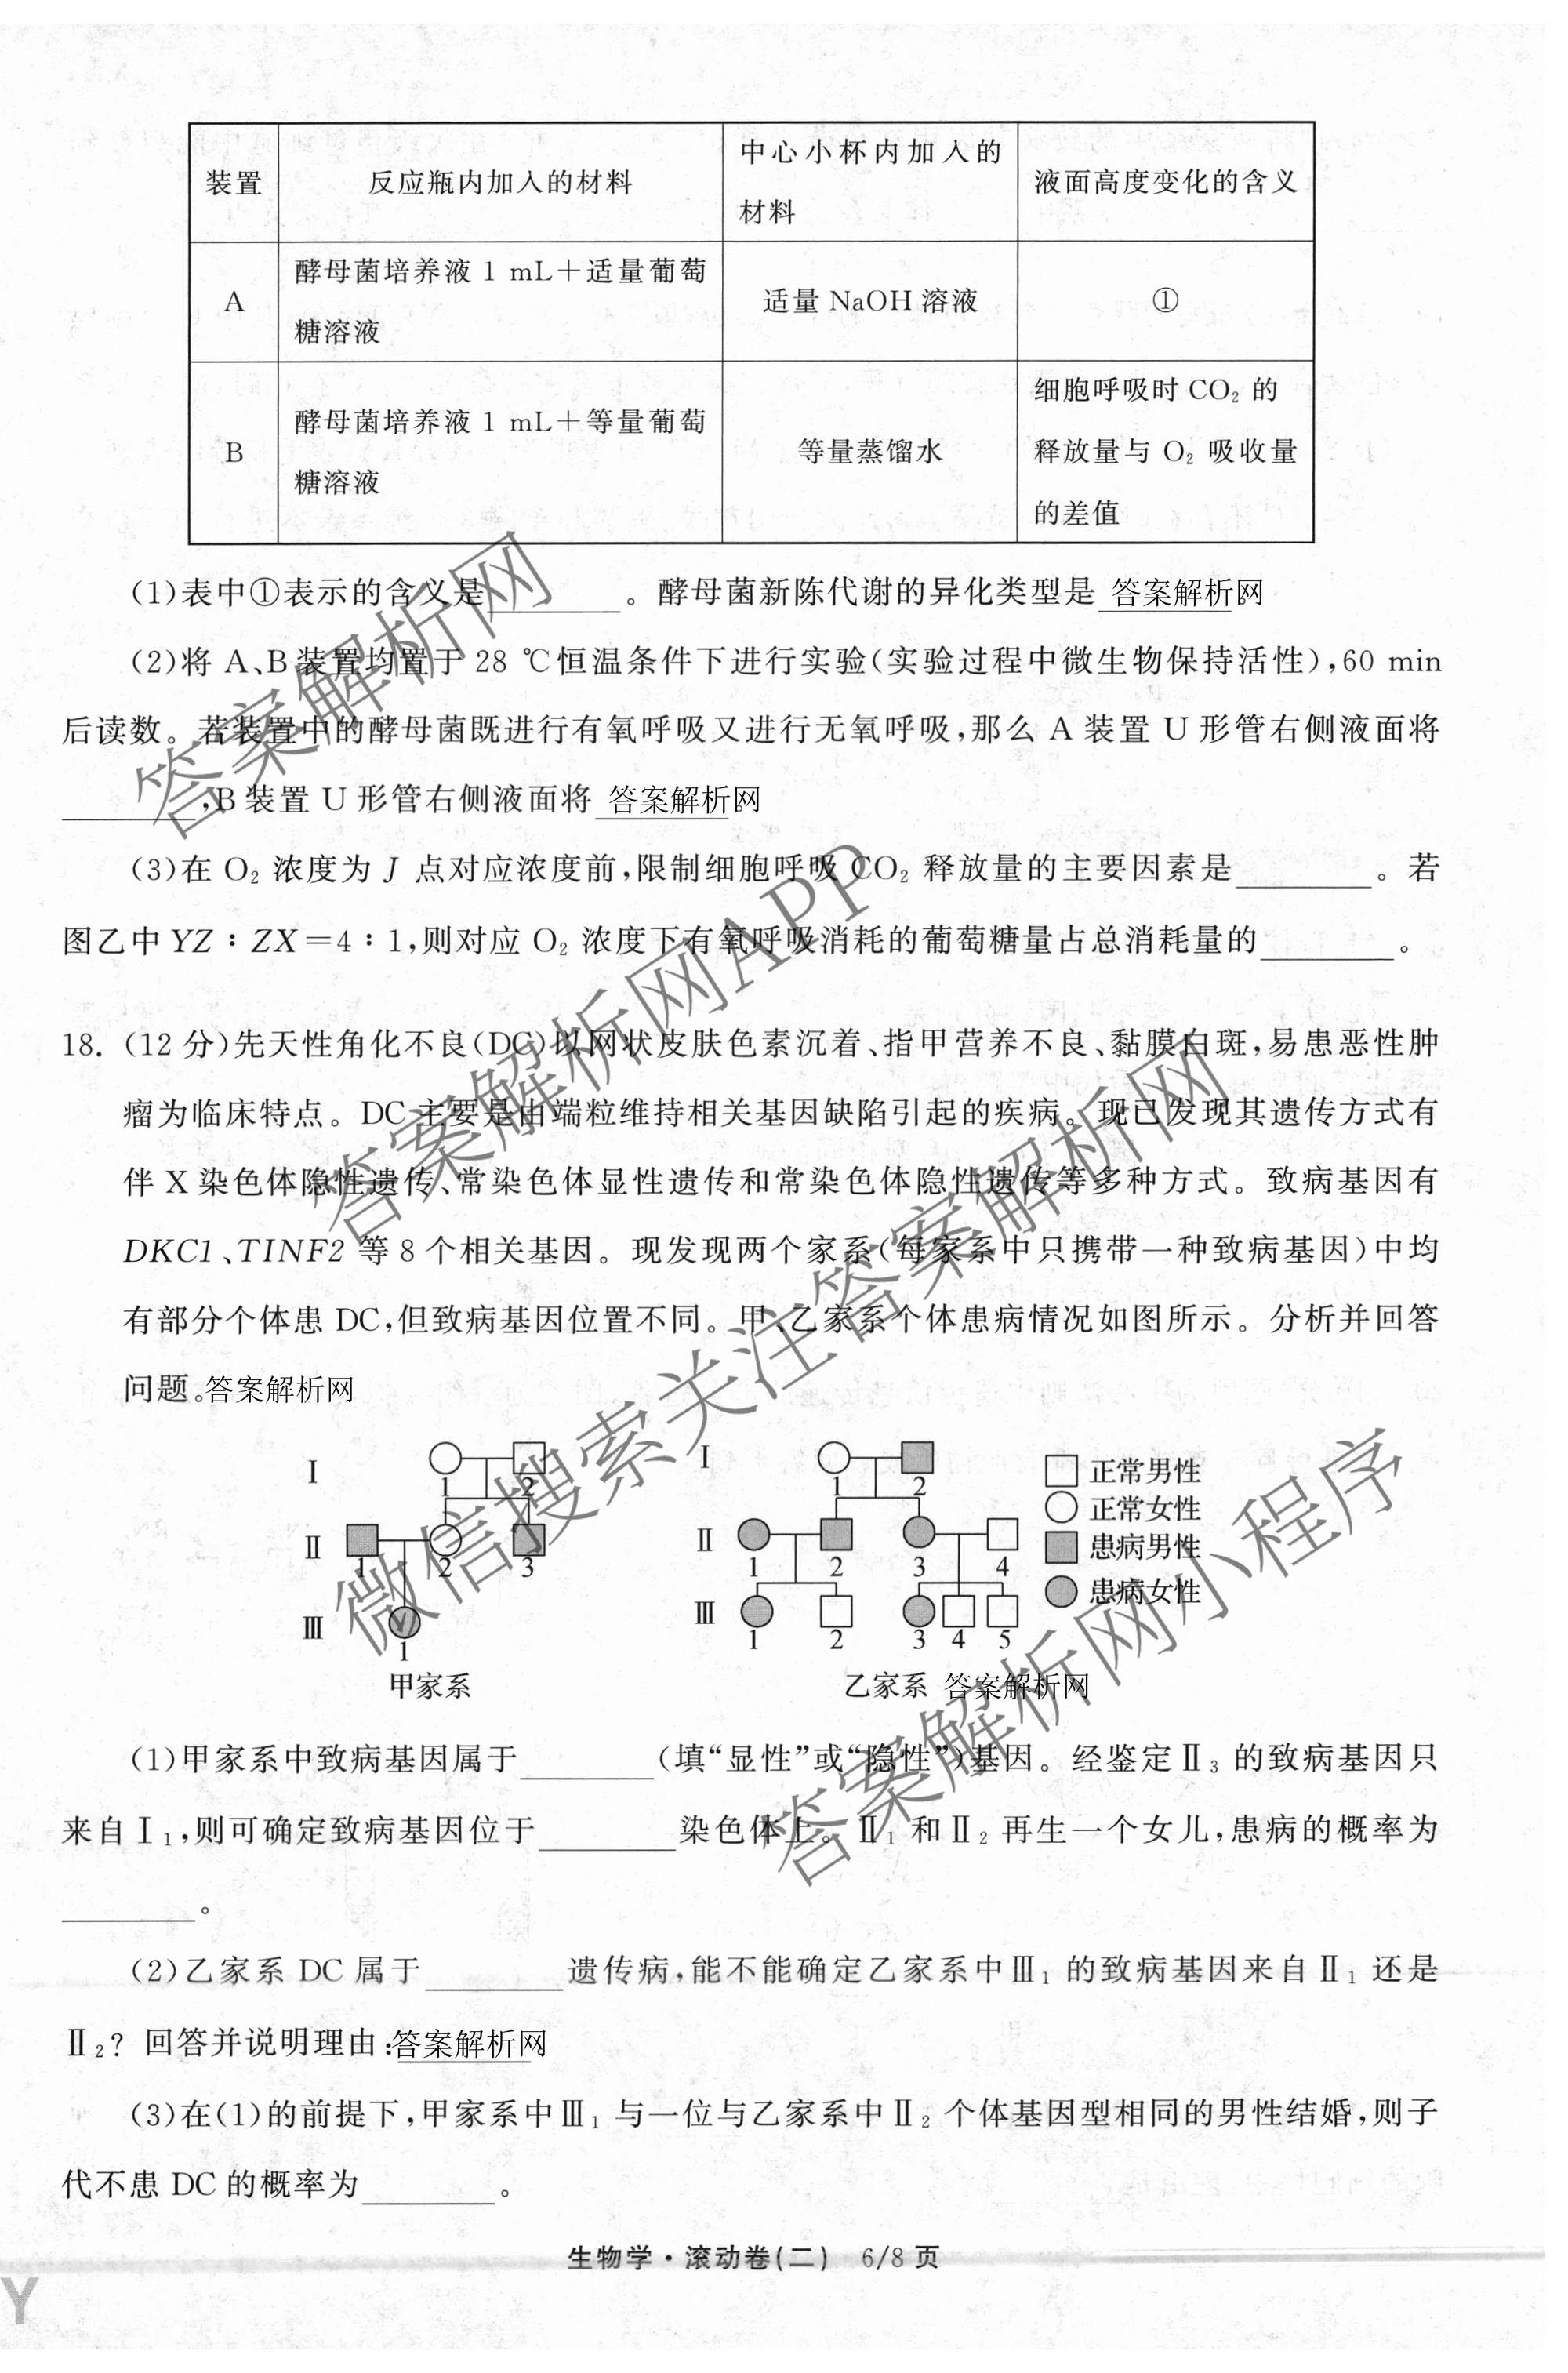 装置
反应瓶内加入的材料
中心小杯内加入的
材料
液面高度变化的含义
A
酵母菌培养液 1 mL＋适量葡萄
糖溶液
适量 NaOH 溶液
①
B
酵母菌培养液 1 mL＋等量葡萄
糖溶液
等量蒸馏水
细胞呼吸时 CO₂ 的
释放量与 O₂ 吸收量
的差值
(1)表中①表示的含义是________。酵母菌新陈代谢的异化类型是 答案解析网
(2)将 A、B装置均置于 28 ℃恒温条件下进行实验(实验过程中微生物保持活性),60 min
后读数。若装置中的酵母菌既进行有氧呼吸又进行无氧呼吸,那么 A 装置 U 形管右侧液面将
________,B装置 U 形管右侧液面将 答案解析网
(3)在 O₂ 浓度为 J 点对应浓度前,限制细胞呼吸 CO₂ 释放量的主要因素是________。若
图乙中 YZ∶ZX＝4∶1,则对应 O₂ 浓度下有氧呼吸消耗的葡萄糖量占总消耗量的________。
18. (12 分)先天性角化不良(DC)以网状皮肤色素沉着、指甲营养不良、黏膜白斑,易患恶性肿
瘤为临床特点。DC 主要是由端粒维持相关基因缺陷引起的疾病。现已发现其遗传方式有
伴 X 染色体隐性遗传、常染色体显性遗传和常染色体隐性遗传等多种方式。致病基因有
DKC1、TINF2 等 8 个相关基因。现发现两个家系(每家系中只携带一种致病基因)中均
有部分个体患 DC,但致病基因位置不同。甲、乙家系个体患病情况如图所示。分析并回答
问题。答案解析网
Ⅰ
1 2
Ⅱ
1 2 3
Ⅲ
1
甲家系
Ⅰ
1 2
Ⅱ
1 2 3 4
Ⅲ
1 2 3 4 5
乙家系 答案解析网
正常男性
正常女性
患病男性
患病女性
(1)甲家系中致病基因属于________(填“显性”或“隐性”)基因。经鉴定Ⅱ₃ 的致病基因只
来自Ⅰ₁,则可确定致病基因位于________染色体上。Ⅱ₁ 和Ⅱ₂ 再生一个女儿,患病的概率为
________。
(2)乙家系 DC 属于________遗传病,能不能确定乙家系中Ⅲ₁ 的致病基因来自Ⅱ₁ 还是
Ⅱ₂? 回答并说明理由:答案解析网
(3)在(1)的前提下,甲家系中Ⅲ₁ 与一位与乙家系中Ⅱ₂ 个体基因型相同的男性结婚,则子
代不患 DC 的概率为________。
生物学·滚动卷(二) 6/8 页
Y
答案解析网
答案解析网APP
微信搜索关注答案解析网
答案解析网小程序